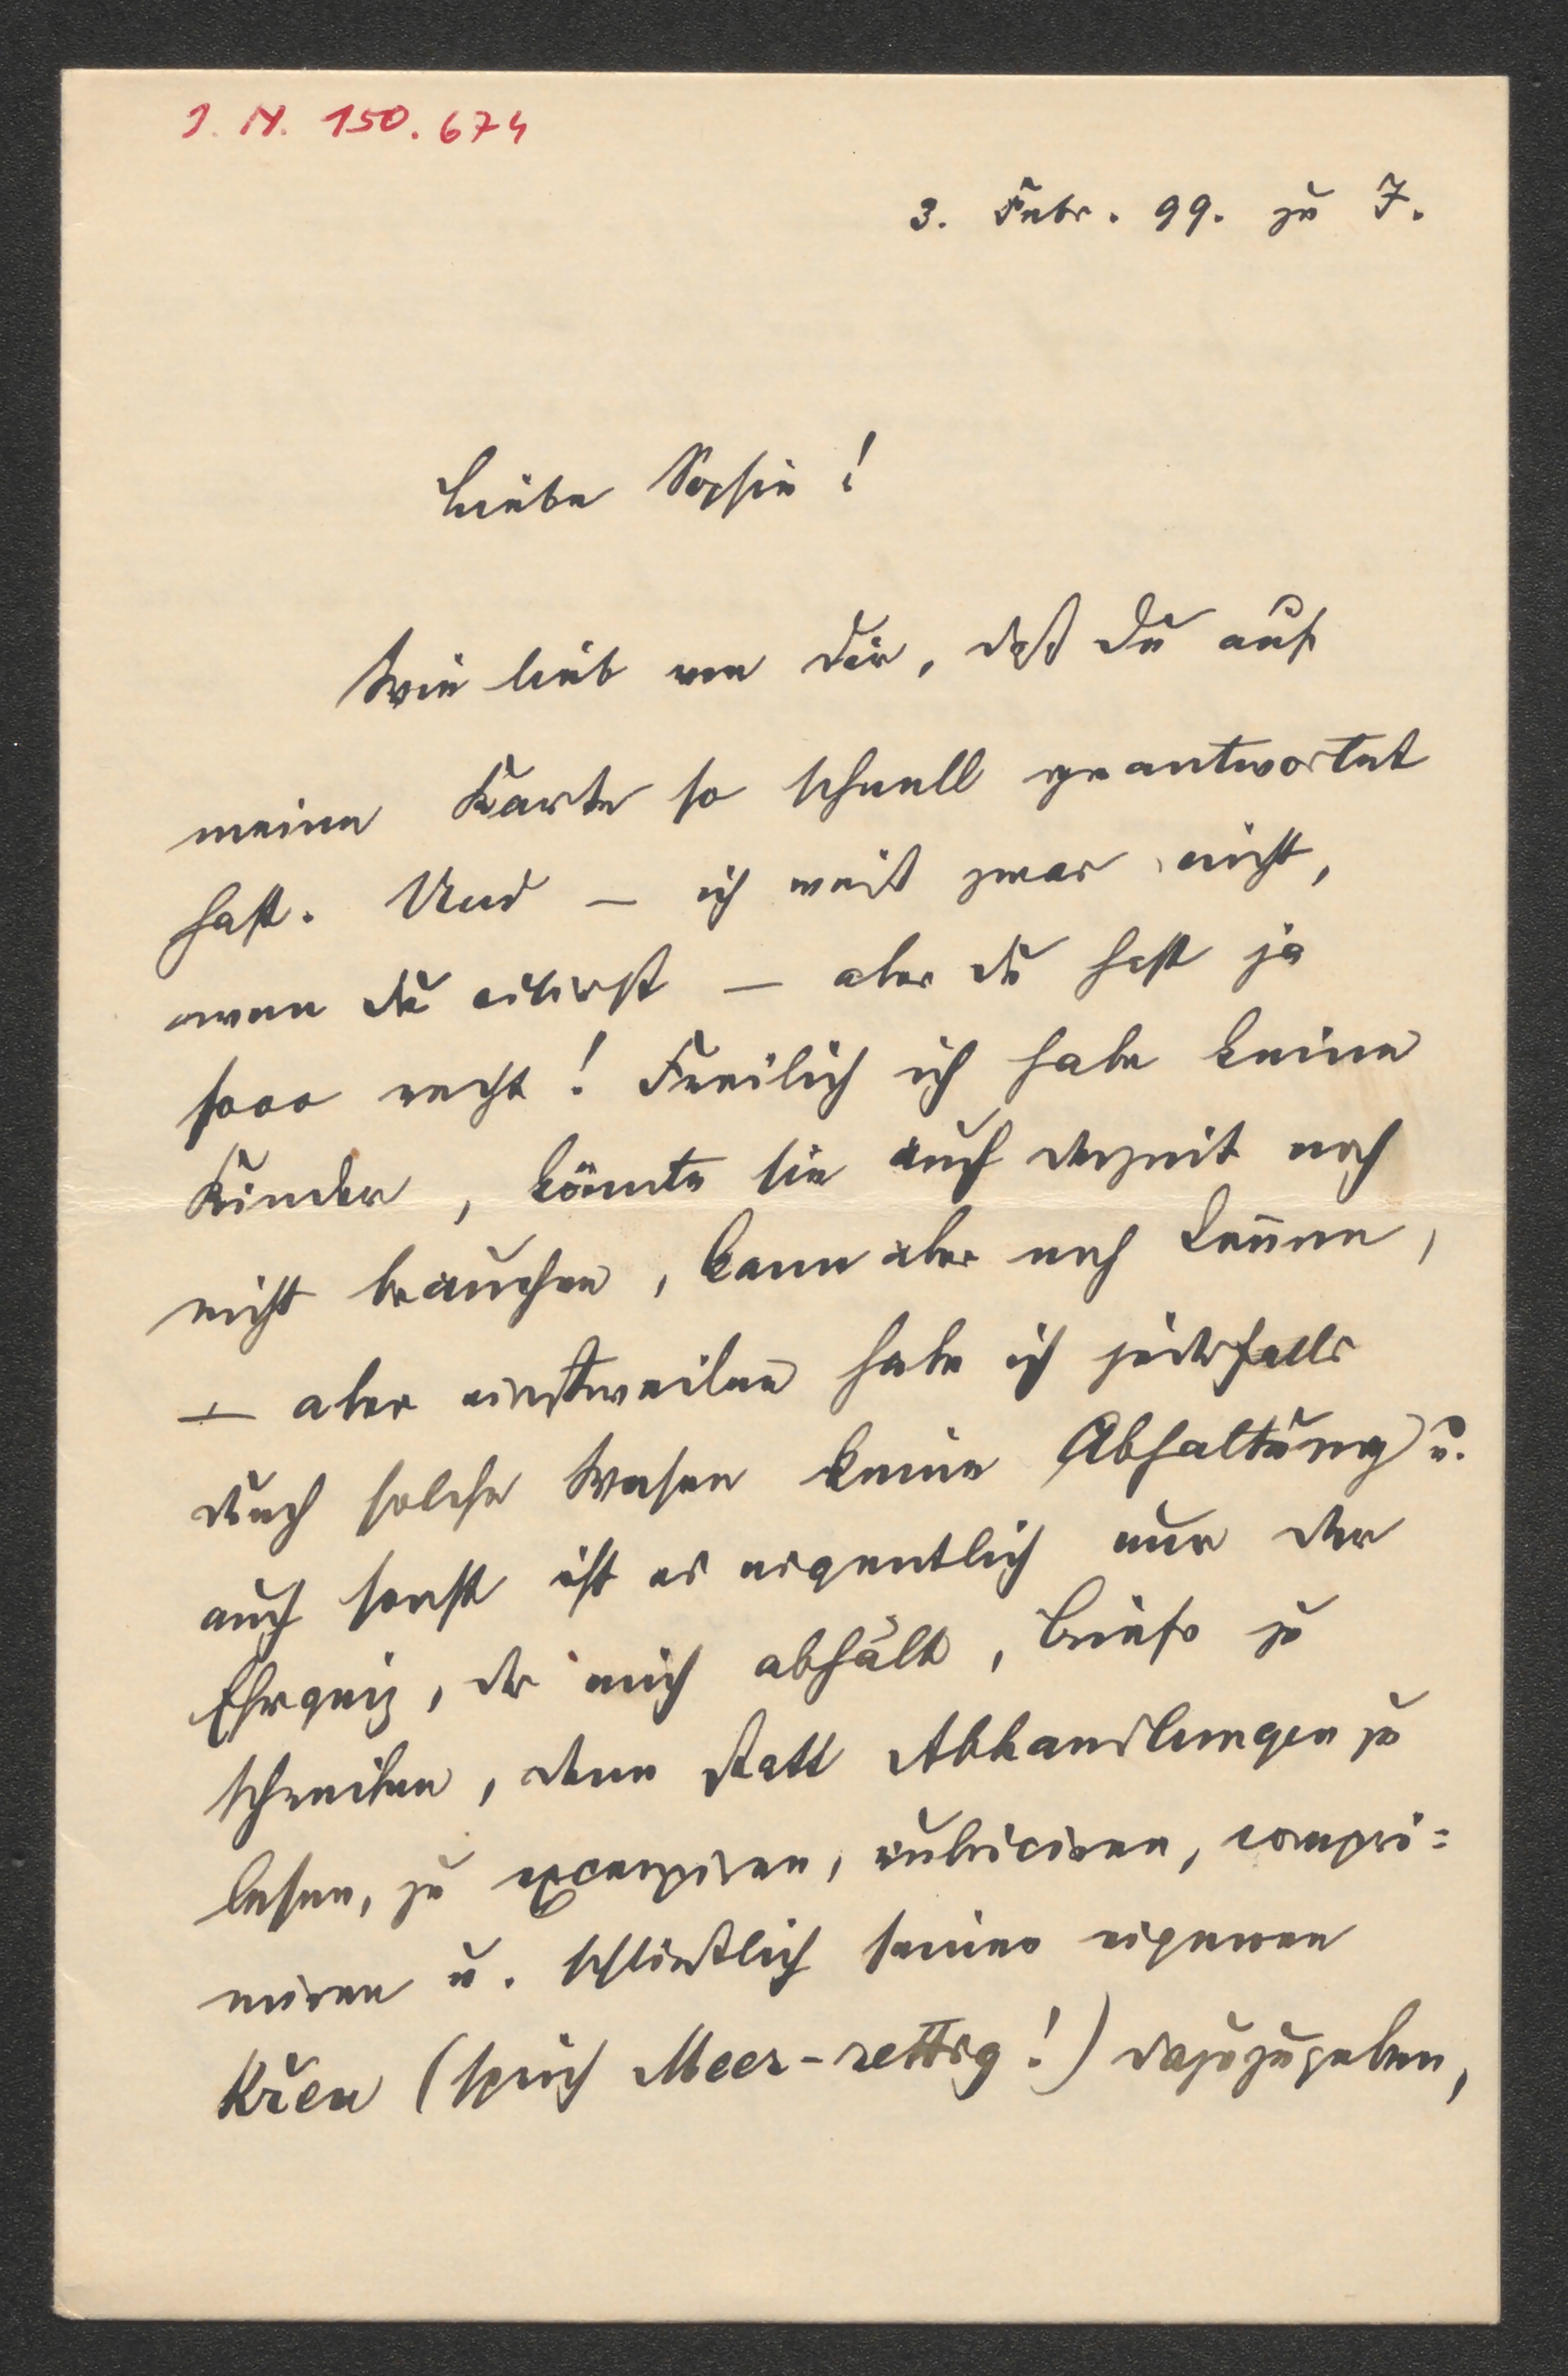 J. N. 150.674
3. Febr. 99. zu F.
Liebe Sophie!
Wie lieb von Dir, daß Du auf
meine Karte so schnell geantwortet
hast. Und – ich weiß zwar nicht,
wen du citirst – aber du hast ja
sooo recht! Freilich ich habe keine
Kinder, könnte sie auch derzeit noch
nicht brauchen, kann aber noch kommen,
– aber einstweilen habe ich jedesfalls
durch solche Wesen keine Abhaltung u.
auch sonst ist es eigentlich nur der
Ehrgeiz, der mich abhält, Briefe zu
schreiben, denn statt Abhandlungen zu
lesen, zu excerpiren, rubriciren, compri=
miren u. schließlich seinen eigenen
Křen (sprich Meer-rettig!) dazuzugeben,